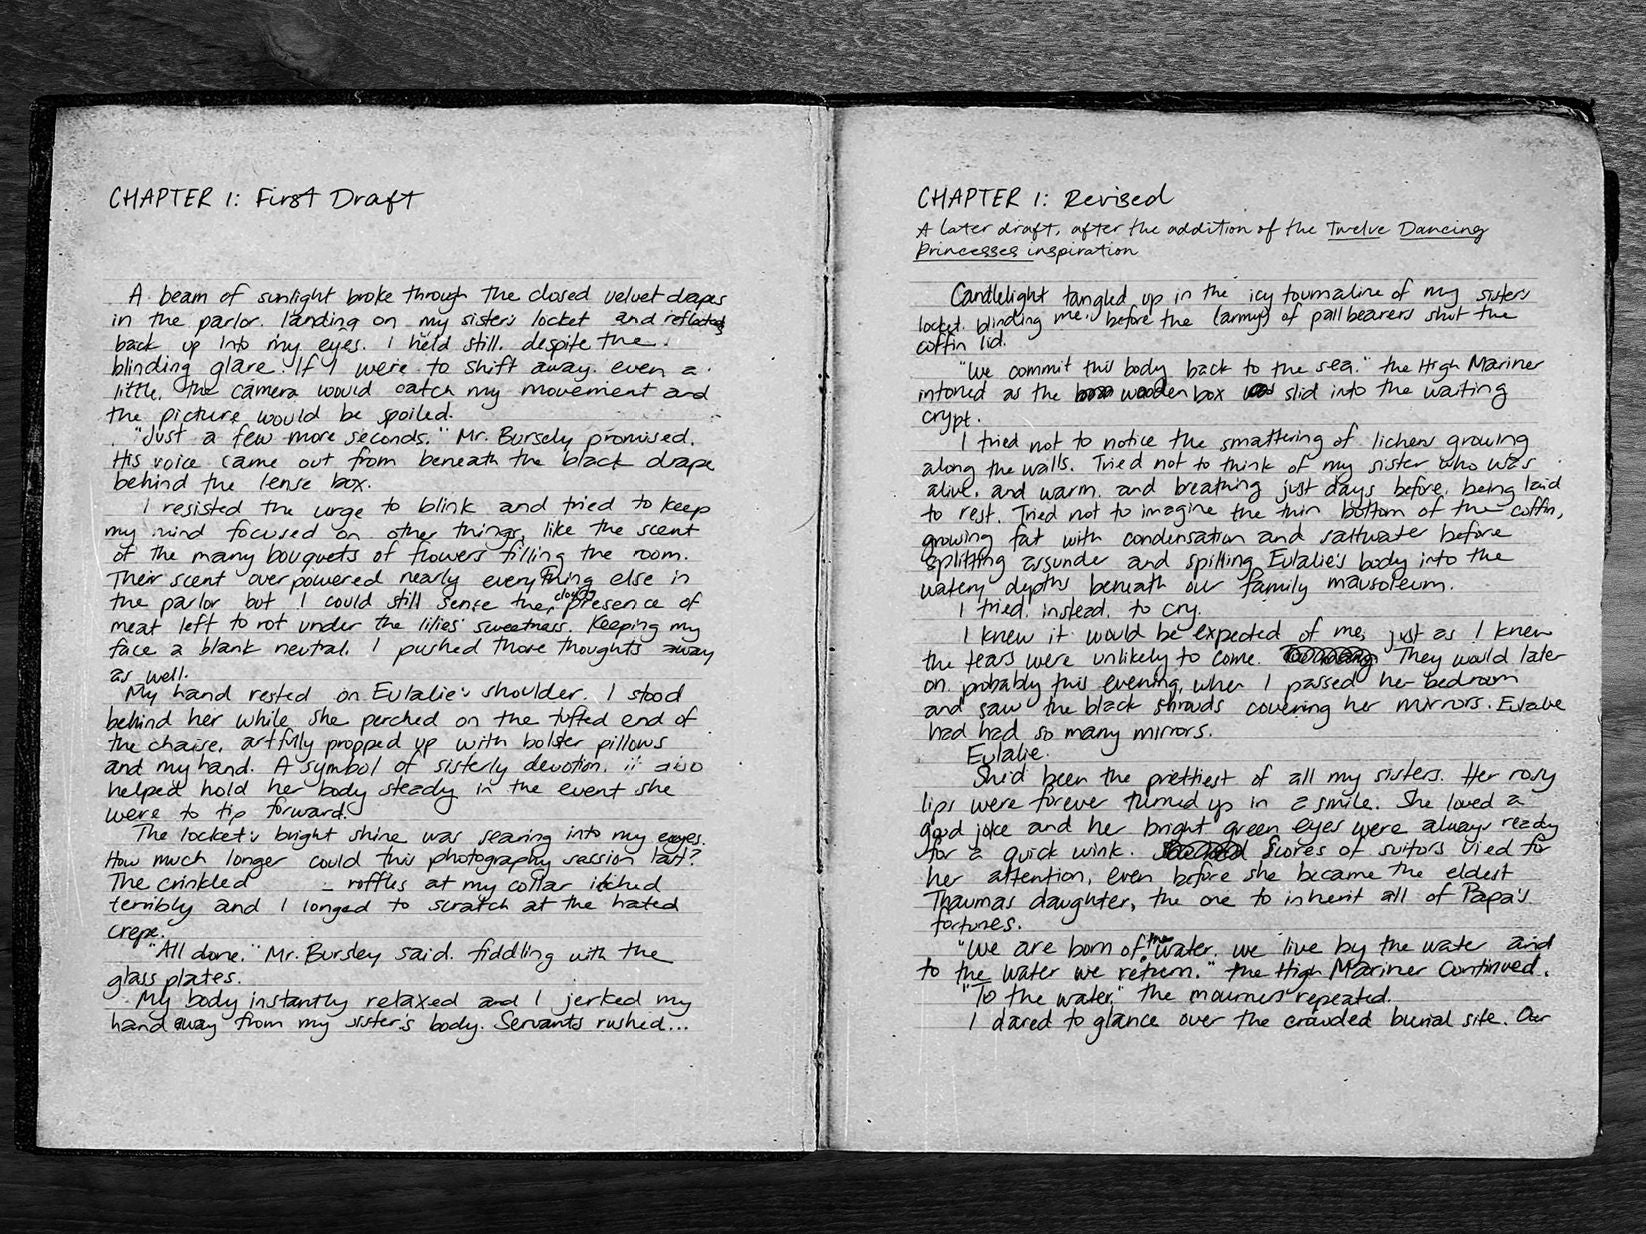 CHAPTER 1: First Draft
A beam of sunlight broke through the closed velvet drapes
in the parlor. landing on my sister's locket and reflected
back up into my eyes. I held still. despite the
blinding glare. If I were to shift away. even a
little, the camera would catch my movement and
the picture would be spoiled.
"Just a few more seconds." Mr. Bursely promised.
His voice came out from beneath the black drape
behind the lense box.
I resisted the urge to blink and tried to keep
my mind focused on other things, like the scent
of the many bouquets of flowers filling the room.
Their scent overpowered nearly everything else in
the parlor but I could still sense the cloying presence of
meat left to rot under the lilies' sweetness. Keeping my
face a blank neutral. I pushed those thoughts away
as well.
My hand rested on Eulalie's shoulder. I stood
behind her while she perched on the tufted end of
the chaise, artfully propped up with bolster pillows
and my hand. A symbol of sisterly devotion. it also
helped hold her body steady in the event she
were to tip forward.
The locket's bright shine was searing into my eyes.
How much longer could this photography session last?
The crinkled ruffles at my collar itched
terribly and I longed to scratch at the hated
crepe.
"All done." Mr. Bursley said. fiddling with the
glass plates.
My body instantly relaxed and I jerked my
hand away from my sister's body. Servants rushed...
CHAPTER 1: Revised
A later draft, after the addition of the Twelve Dancing
Princesses inspiration
Candlelight tangled up in the icy tourmaline of my sister's
locket. blinding me, before the (army) of pallbearers shut the
coffin lid.
"We commit this body back to the sea." the High Mariner
intoned as the wooden box slid into the waiting
crypt.
I tried not to notice the smattering of lichen growing
along the walls. Tried not to think of my sister who was
alive, and warm. and breathing just days before, being laid
to rest. Tried not to imagine the thin bottom of the coffin,
growing fat with condensation and saltwater before
splitting assunder and spilling Eulalie's body into the
watery depths beneath our family mausoleum.
I tried. instead. to cry.
I knew it would be expected of me, just as I knew
the tears were unlikely to come. They would later
on. probably this evening, when I passed her bedroom
and saw the black shrouds covering her mirrors. Eulalie
had had so many mirrors.
Eulalie.
She'd been the prettiest of all my sisters. Her rosy
lips were forever turned up in a smile. She loved a
good joke and her bright green eyes were always ready
for a quick wink. Scores of suitors vied for
her attention, even before she became the eldest
Thaumas daughter, the one to inherit all of Papa's
fortunes.
"We are born of the water. we live by the water and
to the water we return." the High Mariner continued.
"To the water." the mourners repeated.
I dared to glance over the crowded burial site. Our